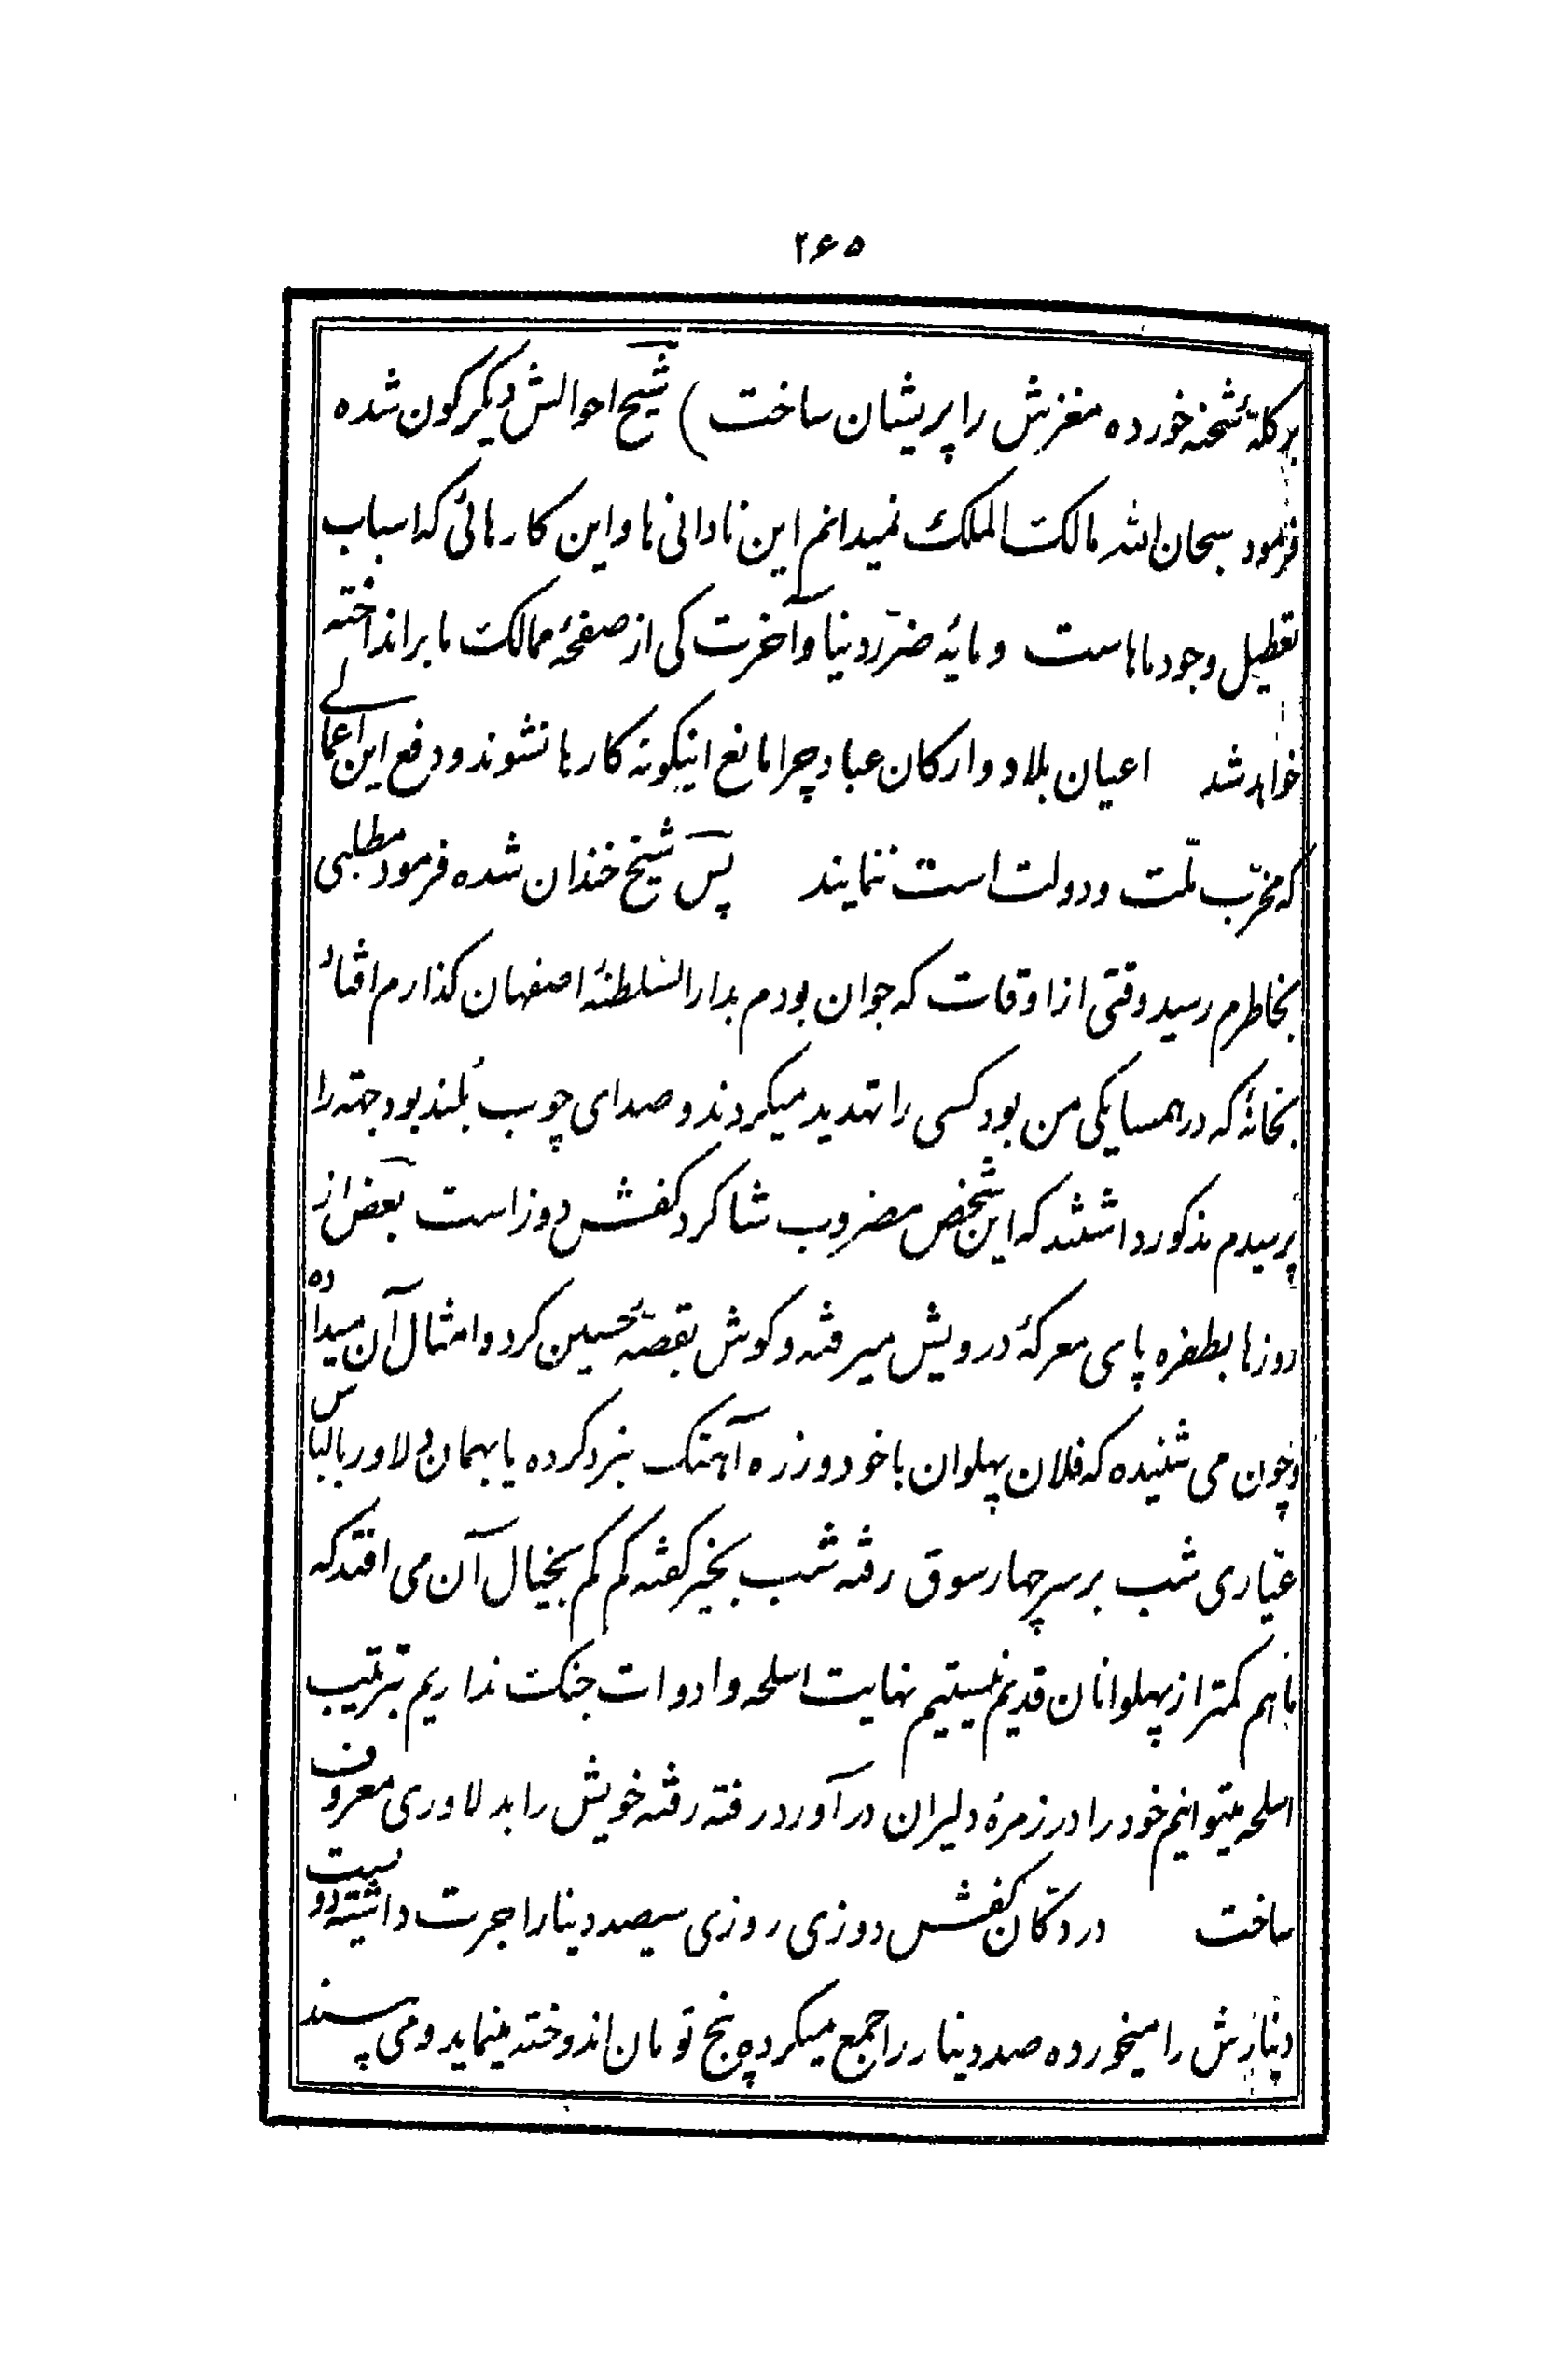 ۲۶۵
بر کلهٔ شحنه خورده مغزش را پریشان ساخت) شیخ احوالش دیکر کون شده
فرمود سبحان الله مالک الملک نمیدانم این نادانی ها و این کارهائی که اسباب
تعطیل وجود ماهاست و مایهٔ ضرر دنیا و آخرت کی از صفحهٔ ممالک ما برانداخته
خواهد شد اعیان بلاد و ارکان عباد چرا مانع اینکونه کارها نشوند و دفع این اعمالی
که مخرّب ملّت و دولت است ننمایند پس شیخ خندان شده فرمود مطلبی
بخاطرم رسید وقتی از اوقات که جوان بودم بدار السلطنهٔ اصفهان کذارم افتاد
بخانهٔ که در همسایکی من بود کسی را تهدید میکردند و صدای چوب بلند بود جهته را
پرسیدم مذکور داشتند که این شخص مضروب شاکرد کفش دوز است بعض از
روزها بطفره پای معرکهٔ درویش میرفته و کوش بقصهٔ حسین کرد و امثال آن میداده
و چون می شنیده که فلان پهلوان با خود و زره آهنک نبرد کرده یا بهمان دلاور با لباس
عیاری شب بر سر چهار سوق رفته شب بخیر کفته کم کم بخیال آن می افتد که
ما هم کمتر از پهلوانان قدیم نیستیم نهایت اسلحه و ادوات جنک نداریم بترتیب
اسلحه میتوانیم خود را در زمرهٔ دلیران در آورد رفته رفته خویش را بدلاوری معروف
ساخت در دکّان کفش دوزی روزی سیصد دینار اجرت داشته دویست
دینارش را میخورده صد دینار را جمع میکرده پنج تومان اندوخته مینماید و می پرسند